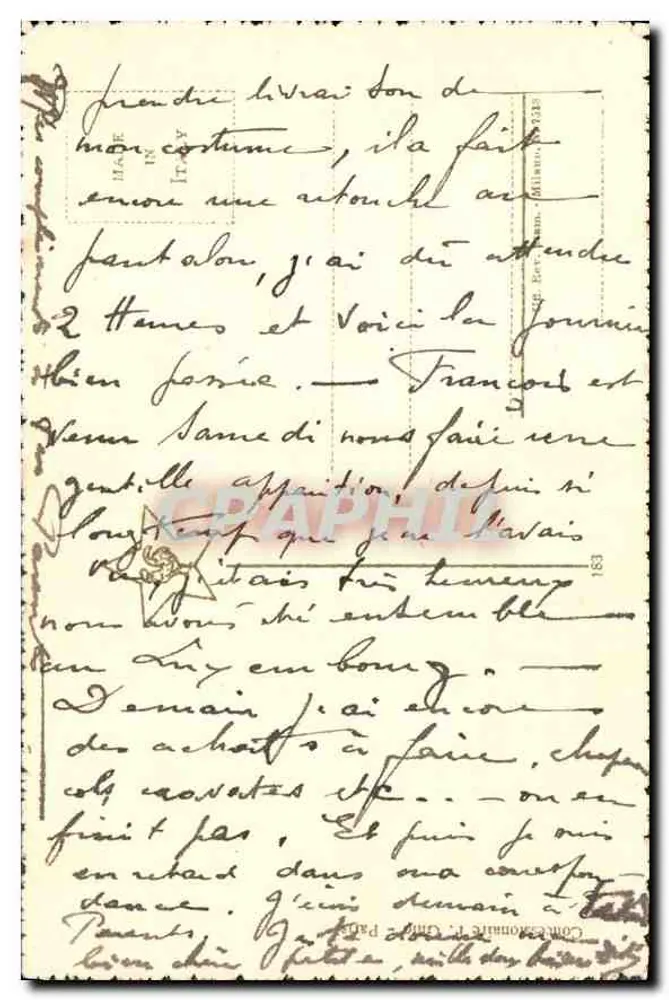 prendre livraison de
mon costume, il a fait
encore une retouche au
pantalon, j'ai dû attendre
2 Heures et voici la journée
bien passée. — François est
venu Samedi nous faire une
gentille apparition, depuis si
longtemps que je ne l'avais
vu, j'étais très heureux
nous avons été ensemble
au Luxembourg. —
Demain j'ai encore
des achats à faire, chapeau
cols, cravates etc... — on en
finit pas. Et puis je suis
en retard dans ma correspon-
dance. J'écris demain à
Parents. Je te donne ma
bien chère petite, mille doux
MADE
IN
ITALY
183
Concessionaire P. - Paris
CPAPHIL